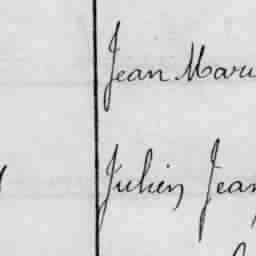 Jean Marie
Julien Jean